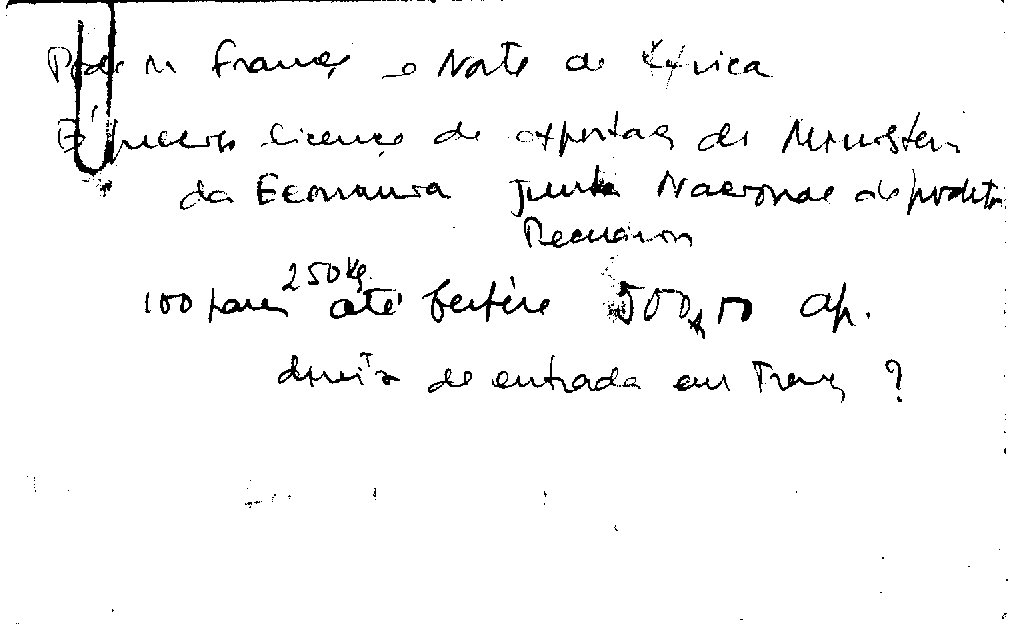 Pode ir França e Norte de Africa
É preciso licença de exportação do Ministerio
da Economia Junta Nacional de produtos
Pecuarios
250 Kg
100 até 500,00 ap.
de entrada em França ?